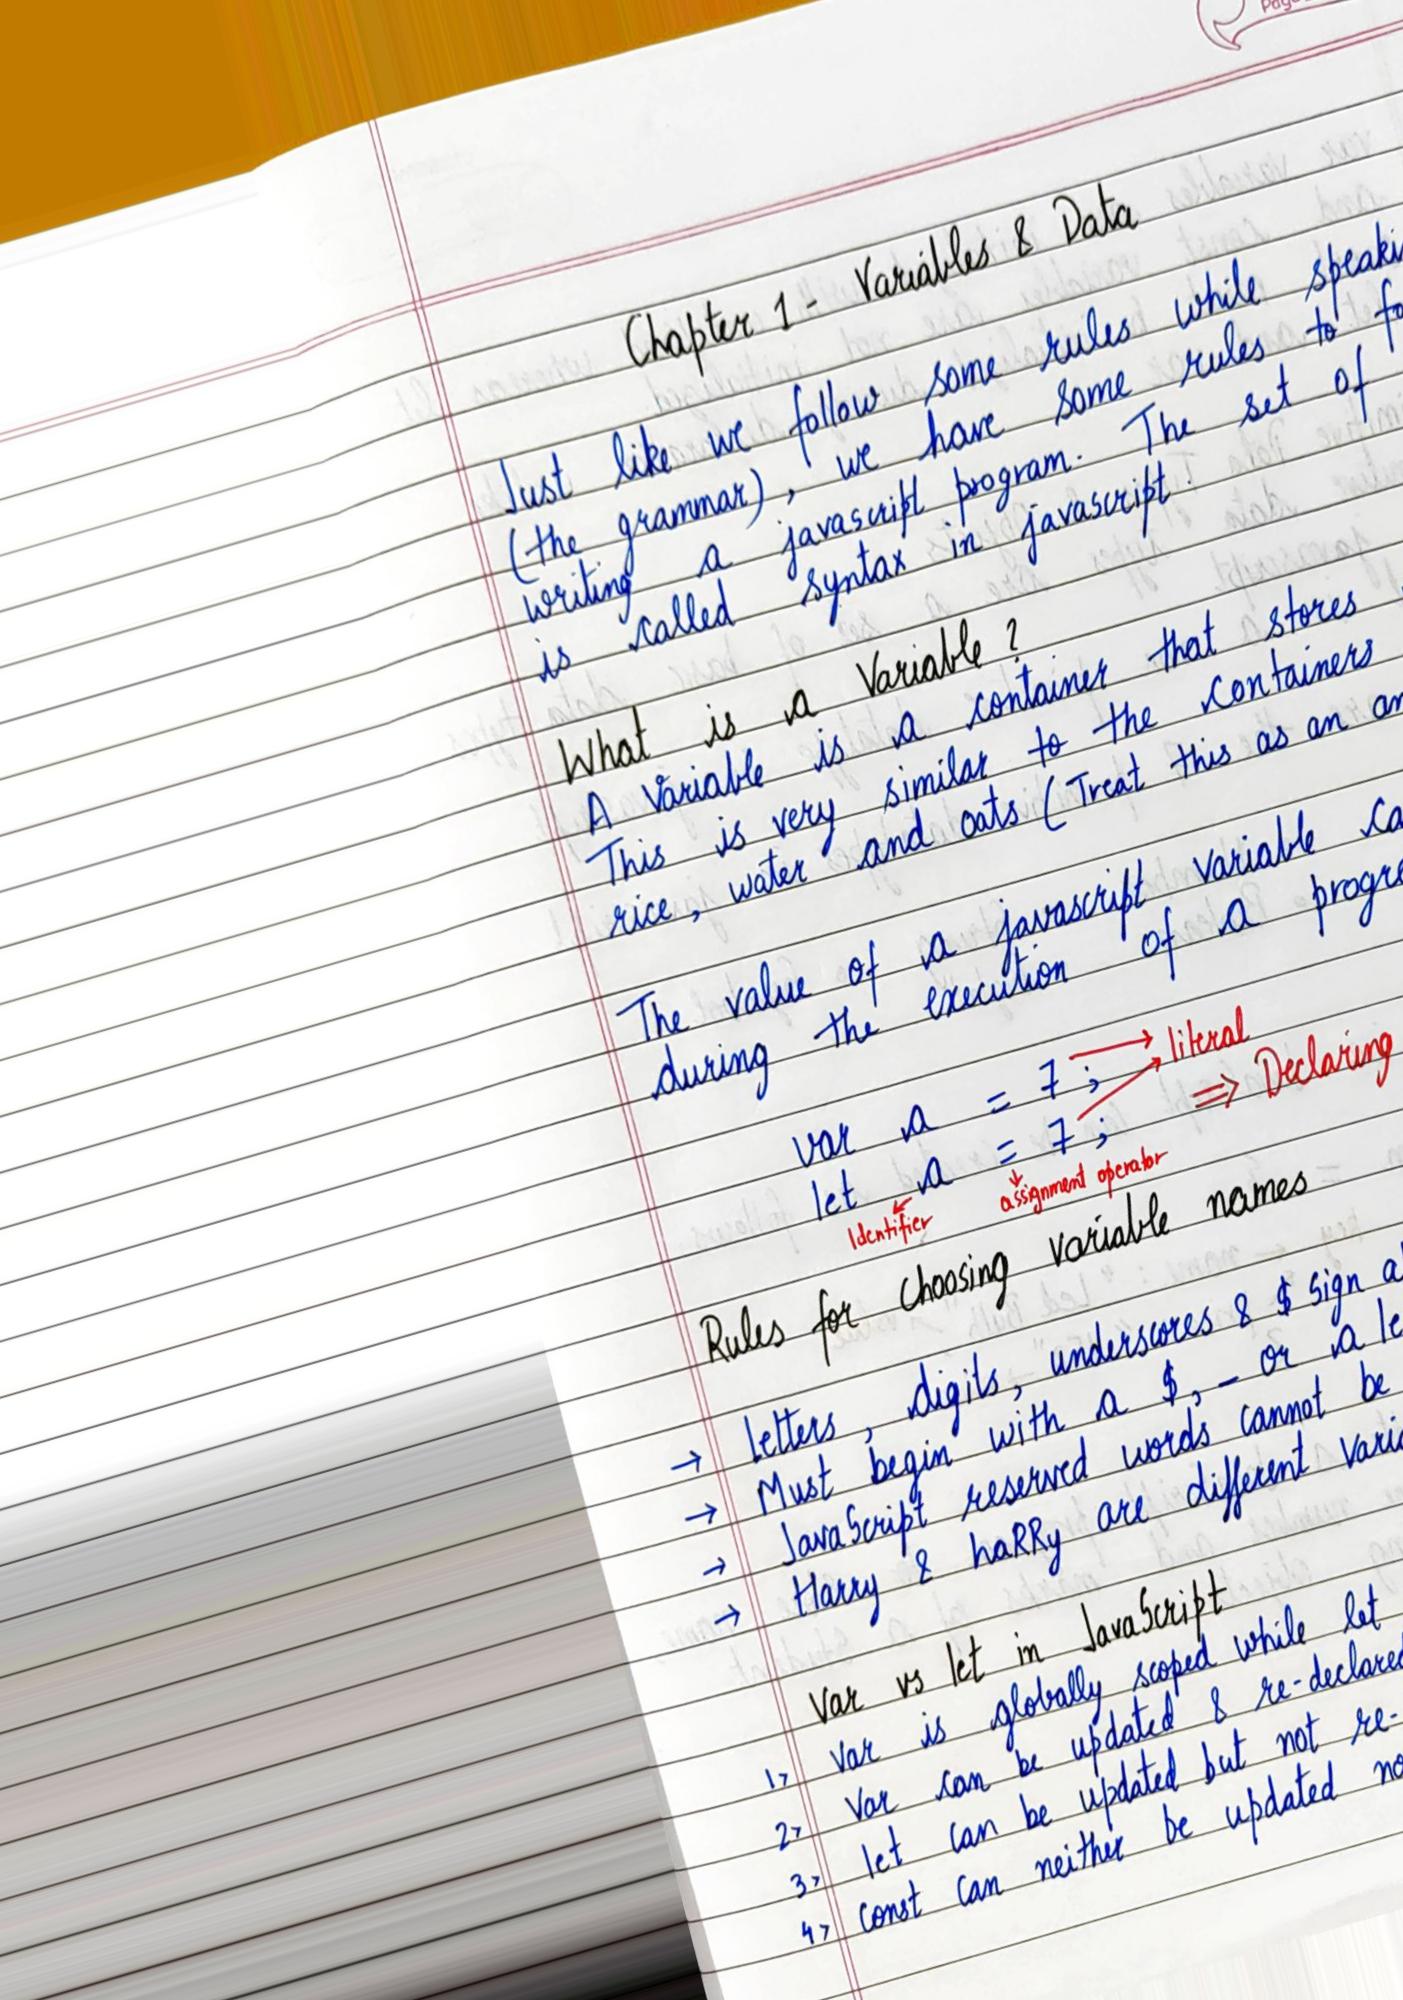 Page
Chapter 1 - Variables & Data
Just like we follow some rules while speaki
(the grammar), we have some rules to fo
writing a javascript program. The set of
is called syntax in javascript.
What is a Variable ?
A variable is a container that stores
This is very similar to the containers
rice, water and oats (Treat this as an an
The value of a javascript variable ca
during the execution of a progra
var a = 7; → literal
let a = 7; ⇒ Declaring
Identifier assignment operator
Rules for choosing variable names
→ letters, digits, underscores & $ sign a
→ Must begin with a $, _ or a le
→ JavaScript reserved words cannot be
→ Harry & haRRy are different varia
Var vs let in JavaScript
1> var is globally scoped while let
2> var can be updated & re-declared
3> let can be updated but not re-
4> const can neither be updated no